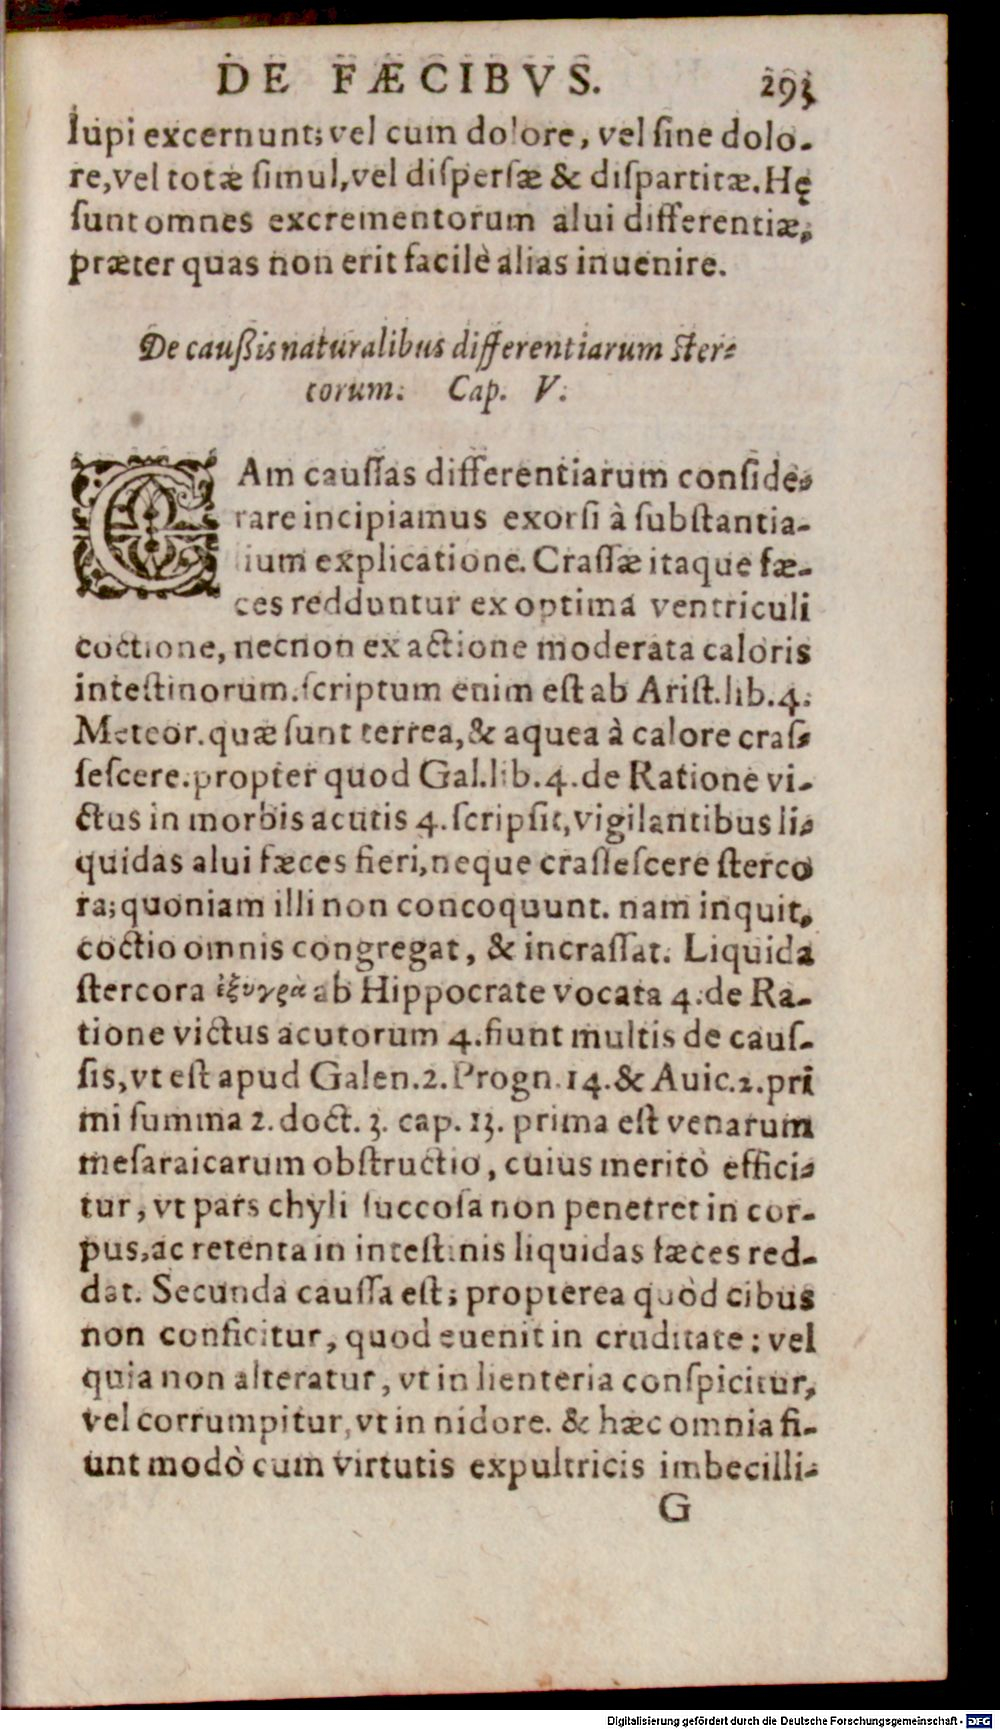 DE FÆCIBVS. 293
lupi excernunt; vel cum dolore, vel ſine dolo-
re, vel totæ ſimul, vel diſperſæ & diſpartitæ. Hę
ſunt omnes excrementorum alui differentiæ,
præter quas non erit facilè alias inuenire.
De cauſſis naturalibus differentiarum ster-
corum. Cap. V.
CAm cauſſas differentiarum conſide-
rare incipiamus exorſi à ſubſtantia-
lium explicatione. Craſſæ itaque fæ-
ces redduntur ex optima ventriculi
coctione, necnon ex actione moderata caloris
inteſtinorum. ſcriptum enim eſt ab Ariſt. lib. 4.
Meteor. quæ ſunt terrea, & aquea à calore craſ-
ſeſcere. propter quod Gal. lib. 4. de Ratione vi-
ctus in morbis acutis 4. ſcripſit, vigilantibus li-
quidas alui fæces fieri, neque craſſeſcere ſterco
ra; quoniam illi non concoquunt. nam inquit,
coctio omnis congregat, & incraſſat. Liquida
ſtercora ἐξυγρὰ ab Hippocrate vocata 4. de Ra-
tione victus acutorum 4. fiunt multis de cauſ-
ſis, vt eſt apud Galen. 2. Progn. 14. & Auic. 2. pri
mi ſumma 2. doct. 3. cap. 13. prima eſt venarum
meſaraicarum obſtructio, cuius meritò effici-
tur, vt pars chyli ſuccoſa non penetret in cor-
pus, ac retenta in inteſtinis liquidas fæces red-
dat. Secunda cauſſa eſt; propterea quòd cibus
non conficitur, quod euenit in cruditate: vel
quia non alteratur, vt in lienteria conſpicitur,
vel corrumpitur, vt in nidore. & hæc omnia fi-
unt modò cum virtutis expultricis imbecilli-
G
Digitalisierung gefördert durch die Deutsche Forschungsgemeinschaft - DFG